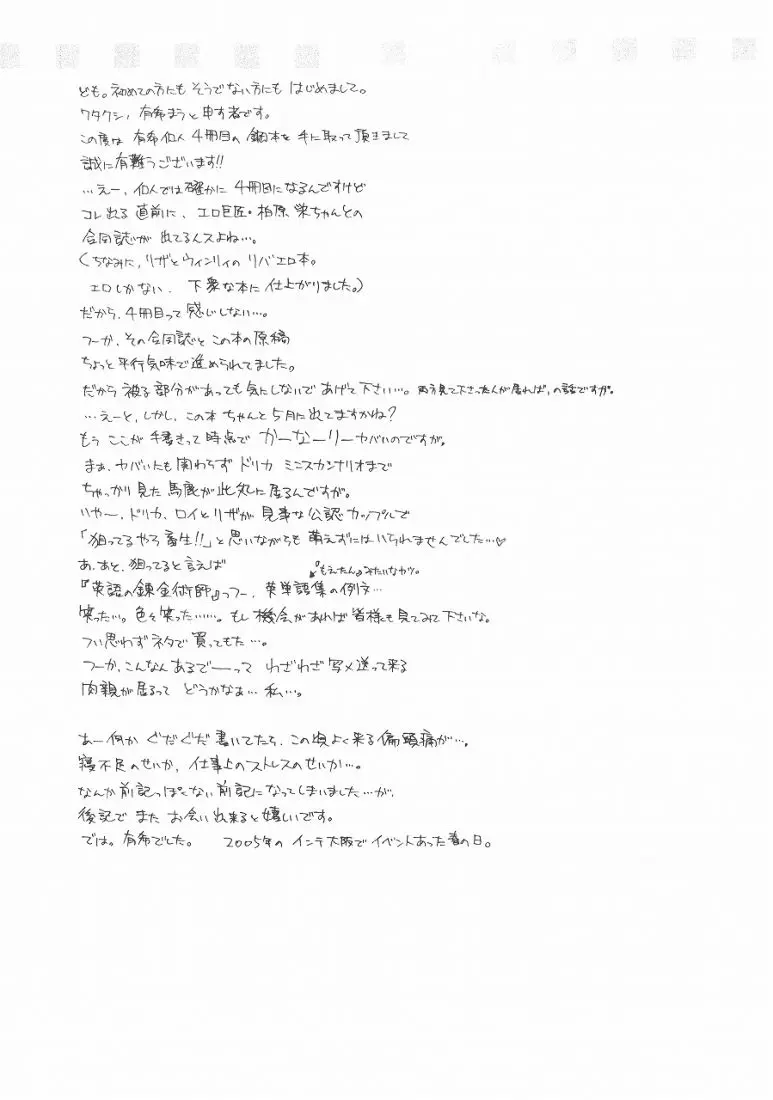 ども。初めての方にも そうでない方にも はじめまして。
ワタクシ、有希まうと申す者です。
この度は 有希個人 4冊目の 鋼本を 手に取って頂きまして
誠に有難うございます!!
…えー、個人では確かに 4冊目になるんですけど
コレ出る 直前に、エロ巨匠・柏原 栄ちゃんとの
合同誌が 出てるんスよね…。
(ちなみに、リザとウィンリィの リバエロ本。
エロしかない、下衆な本に 仕上がりました。)
だから、4冊目って 感じしない…。
つーか、その合同誌と この本の原稿
ちょっと平行気味で進められてました。
だから 被る部分があっても気にしないで あげて下さい…。両方見て下さった人が居れば、の話ですが。
…えーと、しかし、この本 ちゃんと5月に出てますかね?
もう ここが 手書きって時点で かーなーりーヤバいのですが。
まぁ、ヤバいにも関わらず ドリカ ミニスカシナリオまで
ちゃっかり見た 馬鹿が此処に居るんですが。
いやー、ドリカ、ロイとリザが 見事な公認カップルで
「狙ってるやろ畜生!!」と思いながらも 萌えずにはいられませんでした…♡
あ、あと、狙ってると言えば
『もえたん』みたいなヤツ。
『英語の錬金術師』っつー、英単語集の例文…
笑った…。色々笑った……。もし 機会があれば皆様も見てみて下さいな。
つい思わずネタで買ってもた…。
つーか、こんなんあるでーーって わざわざ写メ送って来る
肉親が居るって どうかなぁ… 私…。
あー何か ぐだぐだ書いてたら、この頃よく来る偏頭痛が…。
寝不足のせいか、仕事上のストレスのせいか…。
なんか前記っぽくない前記になってしまいました…が、
後記で また お会い出来ると嬉しいです。
では。有希でした。 2005年の インテ大阪で イベントあった春の日。